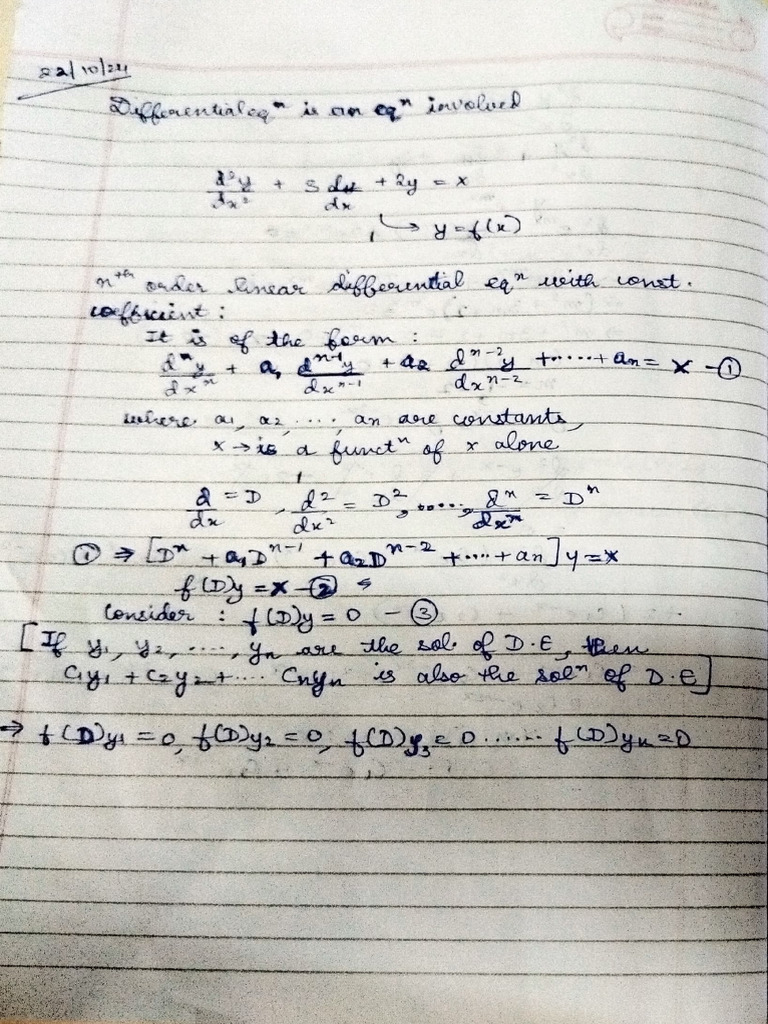 22/10/24
Differential eqⁿ is an eqⁿ involved
d²y/dx² + 3 dy/dx + 2y = x
↳ y = f(x)
nᵗʰ order linear differential eqⁿ with const.
coefficient :
It is of the form :
dⁿy/dxⁿ + a₁ dⁿ⁻¹y/dxⁿ⁻¹ + a₂ dⁿ⁻²y/dxⁿ⁻² + ..... + aₙ = X - ①
where a₁, a₂, ...., aₙ are constants,
x → is a functⁿ of x alone
d/dx = D, d²/dx² = D², ....., dⁿ/dxⁿ = Dⁿ
① ⇒ [Dⁿ + a₁Dⁿ⁻¹ + a₂Dⁿ⁻² + .... + aₙ] y = x
f(D)y = x - ②
Consider : f(D)y = 0 - ③
[If y₁, y₂, ....., yₙ are the sol. of D.E, then
C₁y₁ + C₂y₂ + .... Cₙyₙ is also the solⁿ of D.E]
⇒ f(D)y₁ = 0, f(D)y₂ = 0, f(D)y₃ = 0 ...... f(D)yₙ = 0